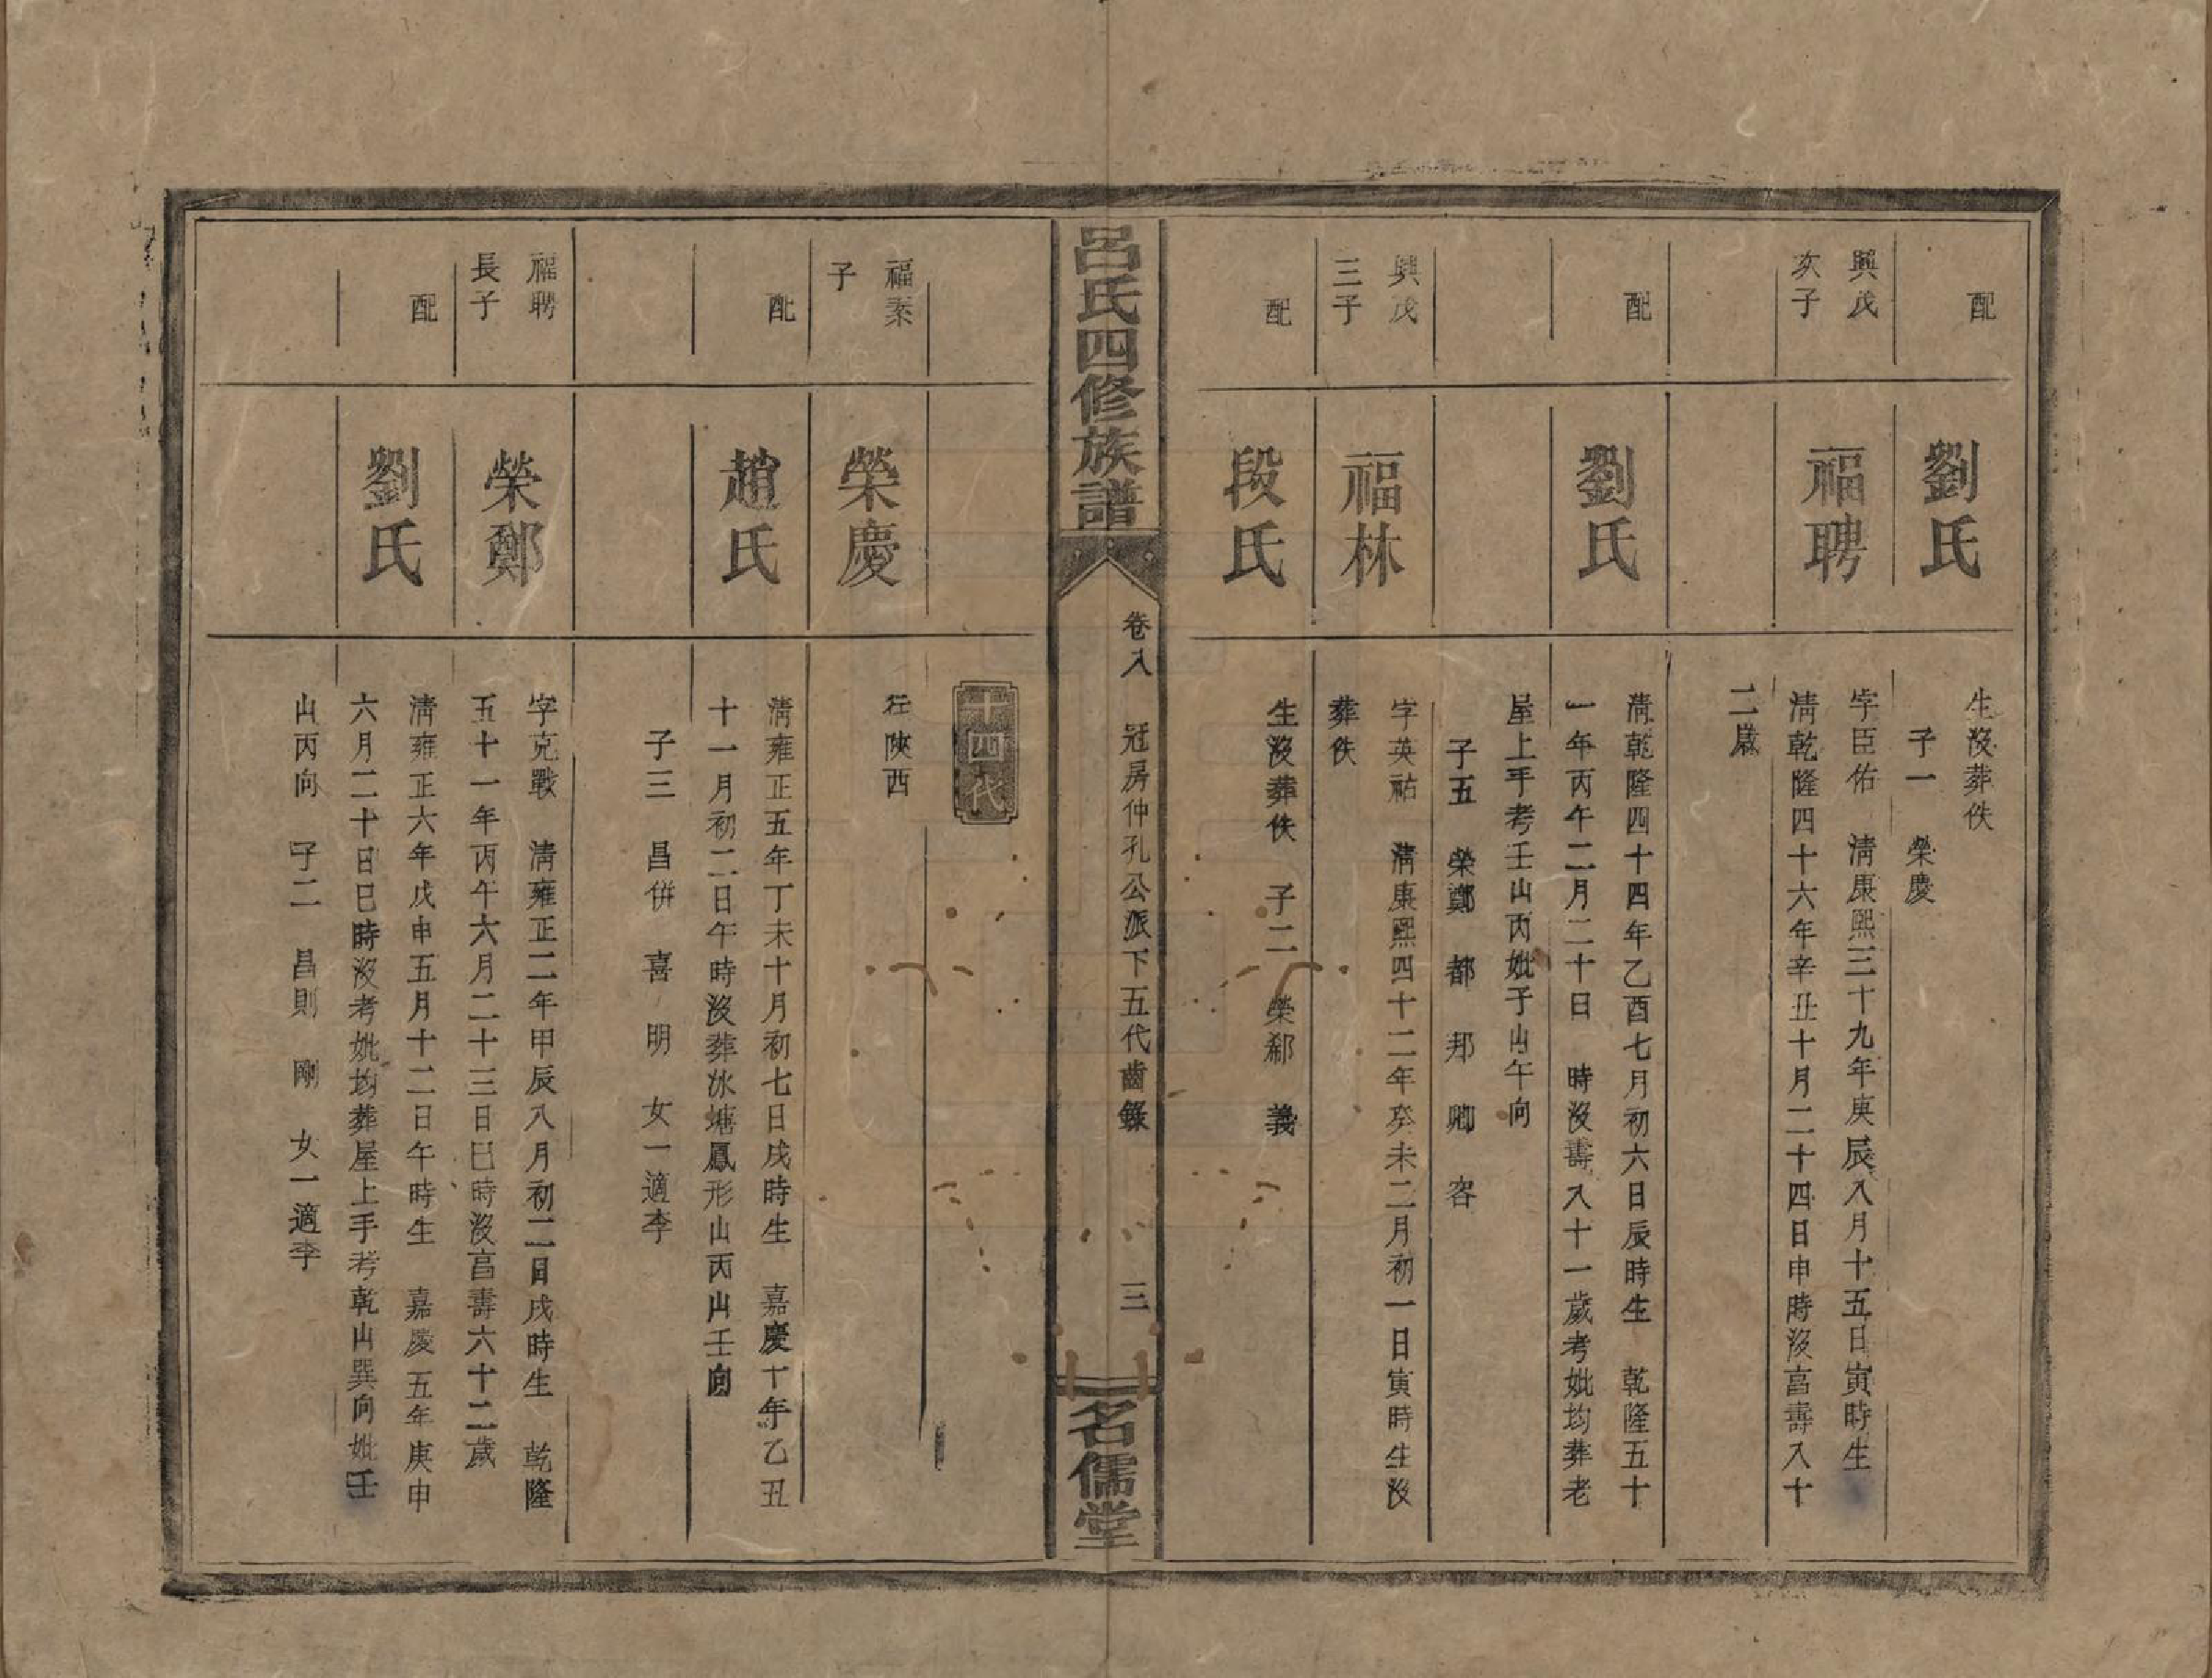 配
劉氏
生沒葬佚
子一　榮慶
興茂
次子
福聘
字臣佑　淸康熙三十九年庚辰八月十五日寅時生
淸乾隆四十六年辛丑十月二十四日申時沒享壽八十
二歲
配
劉氏
淸乾隆四十四年乙酉七月初六日辰時生　乾隆五十
一年丙午二月二十日　時沒壽八十一歲考妣均葬老
屋上手考壬山丙妣子山午向
子五　榮鄭　都　邦　卿　容
興茂
三子
福林
字英祐　淸康熙四十二年癸未二月初一日寅時生沒
葬佚
配
段氏
生沒葬佚　子二　榮郗　義
呂氏四修族譜
卷八　冠房仲孔公派下五代齒錄
三
名儒堂
十四代
福泰
子
榮慶
在陝西
配
趙氏
淸雍正五年丁未十月初七日戌時生　嘉慶十年乙丑
十一月初二日午時沒葬冰塘鳳形山丙山壬向
子三　昌併　喜　明　女一適李
福聘
長子
榮鄭
字克戰　淸雍正二年甲辰八月初二日戌時生　乾隆
五十一年丙午六月二十三日巳時沒享壽六十二歲
配
劉氏
淸雍正六年戊申五月十二日午時生　嘉慶五年庚申
六月二十日巳時沒考妣均葬屋上手考乾山巽向妣壬
山丙向　子二　昌則　剛　女一適李